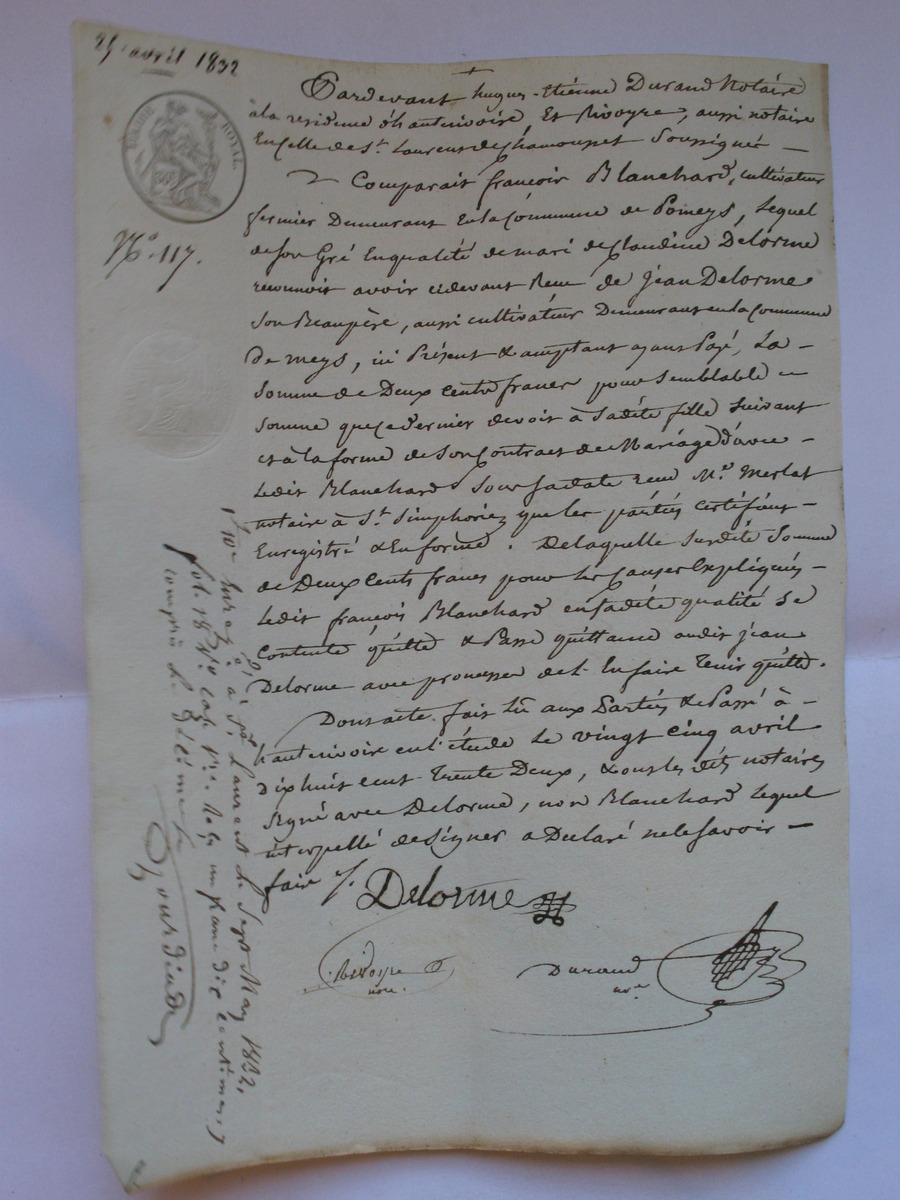 25 avril 1832
TIMBRE ROYAL
N.º 117.
Pardevant hugues-Etienne Durand Notaire
à la residence d'hauterivoire, Et Rivoyre, aussi notaire
En celle de St. Laurent de Chamousset Soussignés —
Comparait françois Blanchard, cultivateur
fermier Demeurant En la Commune de Pomeys, Lequel
de son Gré En qualité de mari de Claudine Delorme
reconnoit avoir cidevant Reçu de jean Delorme
Son Beaupère, aussi cultivateur Demeurant en la Commune
De meys, ici Présent & acceptant ayant Payé, La —
Somme de Deux cents francs pour Semblable —
Somme que ce dernier devoit à Sadite fille Suivant
et à la forme de Son Contract de Mariage d'avec —
Ledit Blanchard Sous sa date reçu Me. Merlat
notaire à St. Simphorien que les parties certifient —
Enregistré & En forme. De laquelle Susdite Somme
de Deux Cents francs pour les Causes Expliquées —
Ledit françois Blanchard en sadite qualité Se
Contente quitte & Passe quittance audit jean
Delorme avec promesse de l'En faire Tenir quitte.
Dont acte fait lu aux Parties & Passé à —
hauterivoire en l'étude Le vingt cinq avril
dix huit cent Trente Deux, & ont les dits notaires
Signé avec Delorme, non Blanchard Lequel
interpellé de Signer a Declaré ne le Savoir —
faire ./.
Delorme
Rivoyre
nore.
Durand
nre
à St. Laurent Le Sept May 1832,
fol. 18 Vo. Case 1re. Reçu un franc dix centimes,
compris Le décime